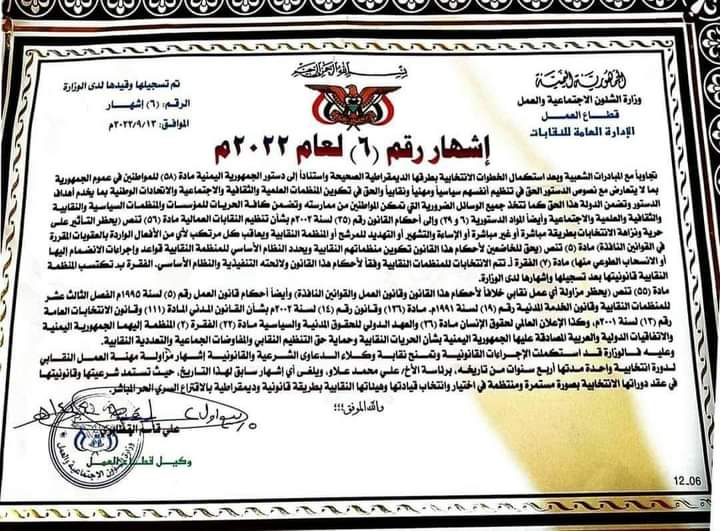 بسم الله الرحمن الرحيم
الجمهورية اليمنية
وزارة الشئون الاجتماعية والعمل
قطاع العمل
الإدارة العامة للنقابات
تم تسجيلها وقيدها لدى الوزارة
الرقم: (٦) إشهار
الموافق: ٢٠٢٢/٩/١٣م
إشهار رقم (٦) لعام ٢٠٢٢م
تجاوباً مع المبادرات الشعبية وبعد استكمال الخطوات الانتخابية بطرقها الديمقراطية الصحيحة واستناداً إلى دستور الجمهورية اليمنية مادة (٥٨) للمواطنين في عموم الجمهورية
بما لا يتعارض مع نصوص الدستور الحق في تنظيم أنفسهم سياسياً ومهنياً ونقابياً والحق في تكوين المنظمات العلمية والثقافية والاجتماعية والاتحادات الوطنية بما يخدم أهداف
الدستور وتضمن الدولة هذا الحق كما تتخذ جميع الوسائل الضرورية التي تمكن المواطنين من ممارسته وتضمن كافة الحريات للمؤسسات والمنظمات السياسية والنقابية
والثقافية والعلمية والاجتماعية وأيضاً المواد الدستورية (٦ و٢٩) وإلى أحكام القانون رقم (٣٥) لسنة ٢٠٠٢م بشأن تنظيم النقابات العمالية مادة (٥٦) تنص (يحظر التأثير على
حرية ونزاهة انتخابات النقابات بطريقة مباشرة أو غير مباشرة أو الإساءة والتشهير أو التهديد للمرشح أو للمنظمة النقابية ويعاقب كل مرتكب لأي من الأفعال الواردة بالعقوبات المقررة
في قوانين النافذة) مادة (٥) تنص (يحق للخاضعين لأحكام هذا القانون تكوين منظماتهم النقابية ويحدد النظام الأساسي للمنظمة النقابية قواعد وإجراءات الانضمام إليها
أو الانسحاب الطوعي منها) مادة (٧) الفقرة أ. تتم الانتخابات للمنظمات النقابية وفقاً لأحكام هذا القانون ولائحته التنفيذية والنظام الأساسي. الفقرة ب. تكتسب المنظمة
النقابية قانونيتها بعد تسجيلها وإشهارها لدى الوزارة.
مادة (٥٥) تنص (يحظر مزاولة أي عمل نقابي خلافاً لأحكام هذا القانون وقانون العمل والقوانين النافذة) وأيضاً أحكام قانون العمل رقم (٥) لسنة ١٩٩٥م الفصل الثالث عشر
للمنظمات النقابية وقانون الخدمة المدنية رقم (١٩) لسنة ١٩٩١م. مادة (١٣٦) وقانون رقم (١٤) لسنة ٢٠٠٢م بشأن القانون المدني المادة (١١١) وقانون الانتخابات العامة
رقم (١٣) لسنة ٢٠٠١م. وكذا الإعلان العالمي لحقوق الإنسان مادة (٢٦) والعهد الدولي للحقوق المدنية والسياسية مادة (٢٢) الفقرة (٣) المنظمة إليهما الجمهورية اليمنية
والاتفاقيات الدولية والعربية المصادقة عليها الجمهورية اليمنية بشأن الحريات النقابية وحماية حق التنظيم النقابي والمفاوضات الجماعية والتعددية النقابية.
وعليه فالوزارة قد استكملت الإجراءات القانونية وتمنح نقابة وكلاء الدعاوى الشرعية والقانونية إشهار مزاولة مهنة العمل النقابي
لدورة انتخابية واحدة مدتها أربع سنوات من تاريخه، برئاسة الأخ/ علي محمد علاو، ويلغى أي إشهار سابق لهذا التاريخ، حيث تستمد شرعيتها وقانونيتها
في عقد دوراتها الانتخابية بصورة مستمرة ومنتظمة في اختيار وانتخاب قيادتها وهيئاتها النقابية بطريقة قانونية وديمقراطية بالاقتراع السري الحر المباشر.
والله الموفق،،،
علي قاسم
وكيل قطاع العمل
12.06